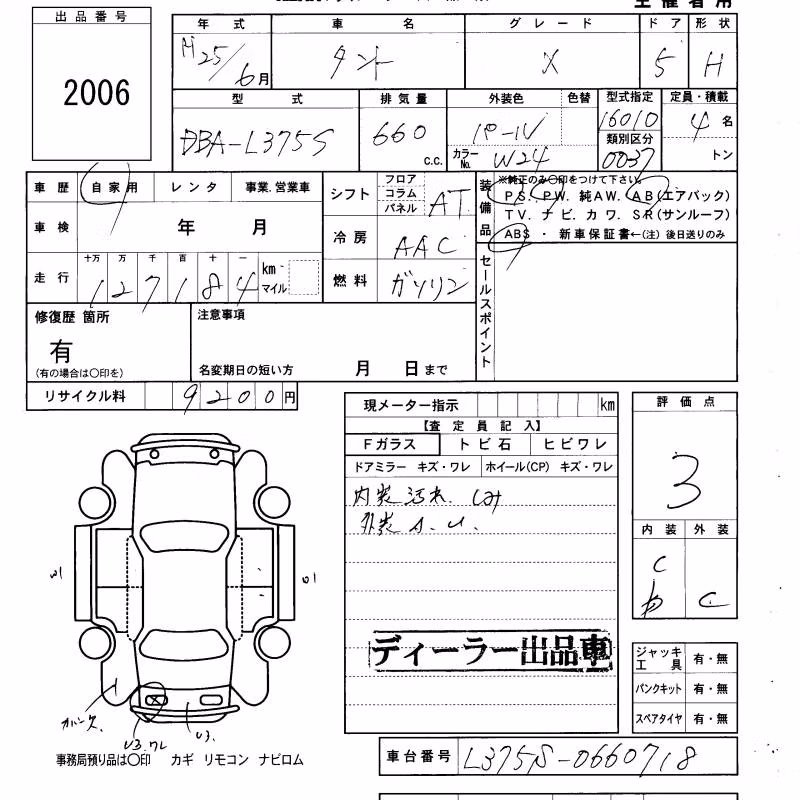 出品番号
2006
年式 車名 グレード ドア 形状
H25/6月 タント X 5 H
型式 排気量 外装色 色替 型式指定 定員・積載
DBA-L375S 660 c.c. パール 16010 4名
カラーNo. W24 類別区分 0037 トン
車歴 自家用 レンタ 事業.営業車
車検 年 月
走行 十万 万 千 百 十 一
127184 km マイル
シフト フロア コラム パネル AT
冷房 AAC
燃料 ガソリン
装備品
※純正のみ〇印をつけて下さい。
PS. PW. 純AW. AB(エアバック)
TV. ナビ. カワ. SR(サンルーフ)
ABS ・ 新車保証書←(注) 後日送りのみ
セールスポイント
修復歴 箇所
有
(有の場合は〇印を)
注意事項
名変期日の短い方 月 日まで
リサイクル料 9200円
現メーター指示 km
【査定員記入】
Fガラス トビ石 ヒビワレ
ドアミラー キズ・ワレ ホイール(CP) キズ・ワレ
内装汚れ. シミ
外装 A. U.
ディーラー出品車
評価点
3
内装 外装
C
C
ジャッキ 工具 有・無
パンクキット 有・無
スペアタイヤ 有・無
U3.ワレ
U3.
事務局預り品は〇印 カギ リモコン ナビロム
車台番号 L375S-0660718